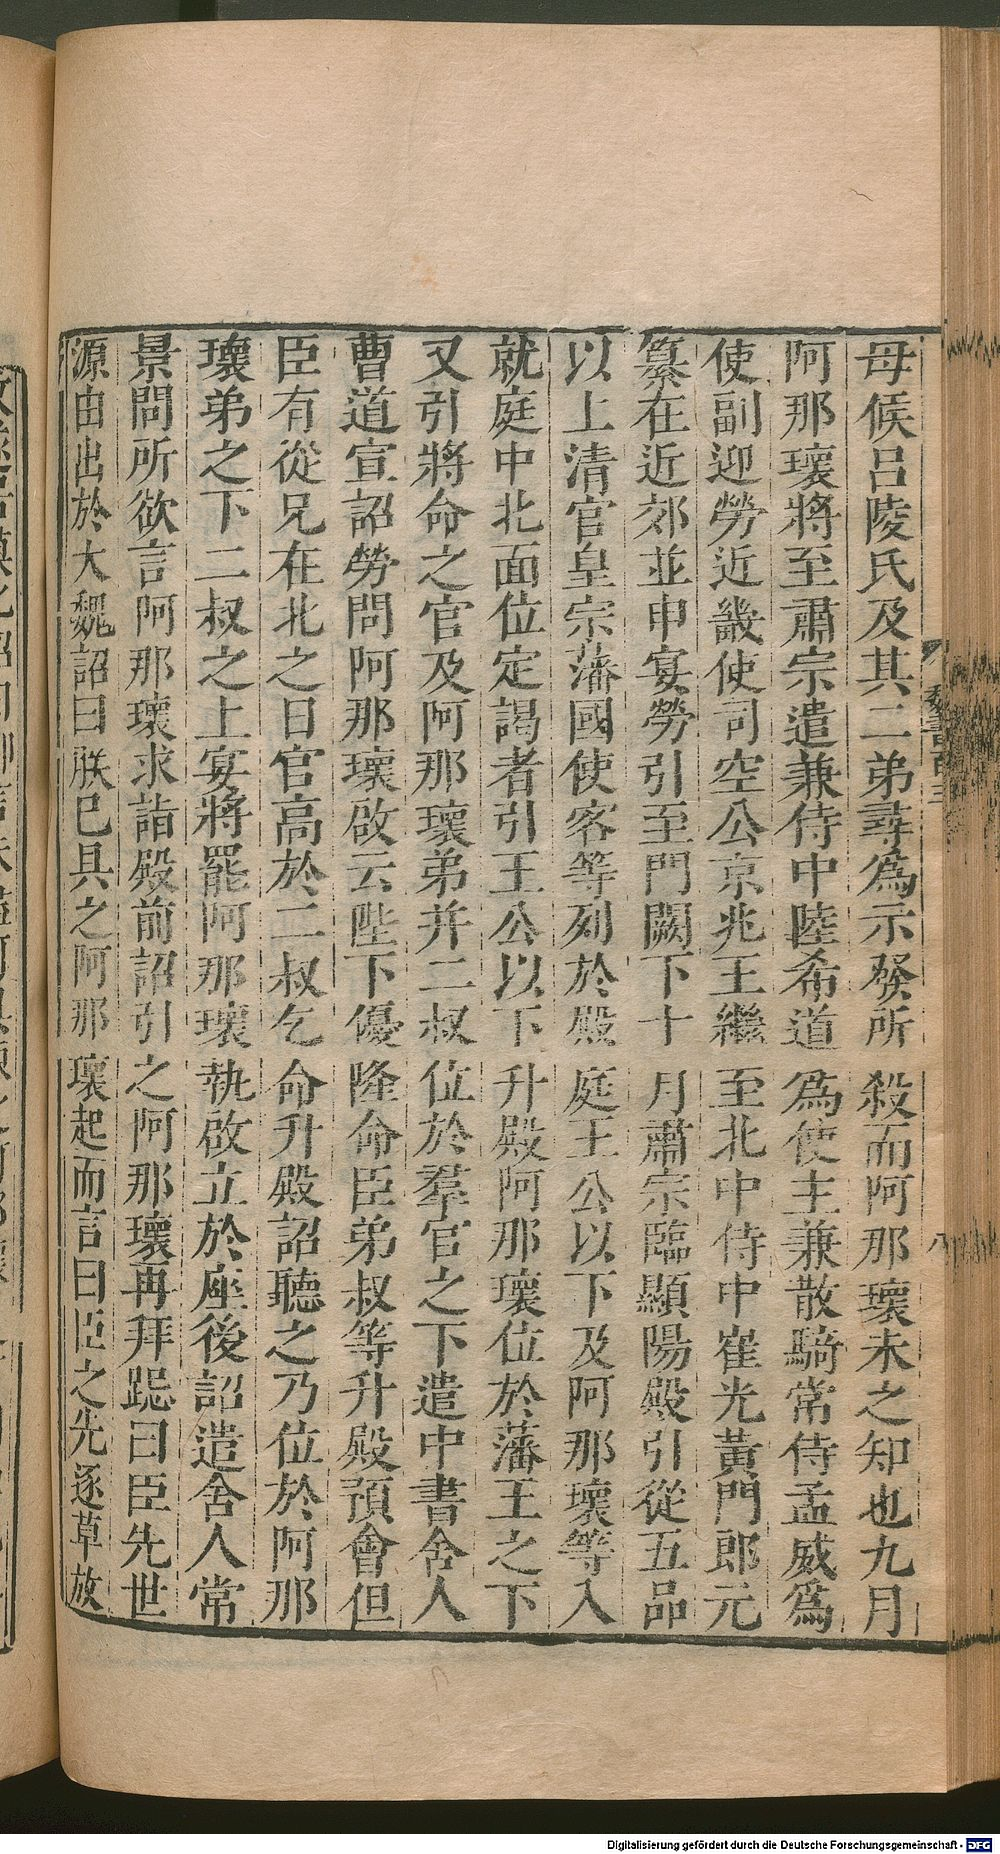 母候呂陵氏及其二弟尋為示發所殺而阿那瓌未之知也九月
阿那瓌將至肅宗遣兼侍中陸希道為使主兼散騎常侍孟威為
使副迎勞近畿使司空公京兆王繼至北中侍中崔光黃門郎元
纂在近郊並申宴勞引至門闕下十月肅宗臨顯陽殿引從五品
以上清官皇宗藩國使客等列於殿庭王公以下及阿那瓌等入
就庭中北面位定謁者引王公以下升殿阿那瓌位於藩王之下
又引將命之官及阿那瓌弟并二叔位於羣官之下遣中書舍人
曹道宣詔勞問阿那瓌啟云陛下優隆命臣弟叔等升殿預會但
臣有從兄在北之日官高於二叔乞命升殿詔聽之乃位於阿那
瓌弟之下二叔之上宴將罷阿那瓌執啟立於座後詔遣舍人常
景問所欲言阿那瓌求詣殿前詔引之阿那瓌再拜跽曰臣先世
源由出於大魏詔曰朕已具之阿那瓌起而言曰臣之先逐草放
魏書百三
八
Digitalisierung gefördert durch die Deutsche Forschungsgemeinschaft - DFG